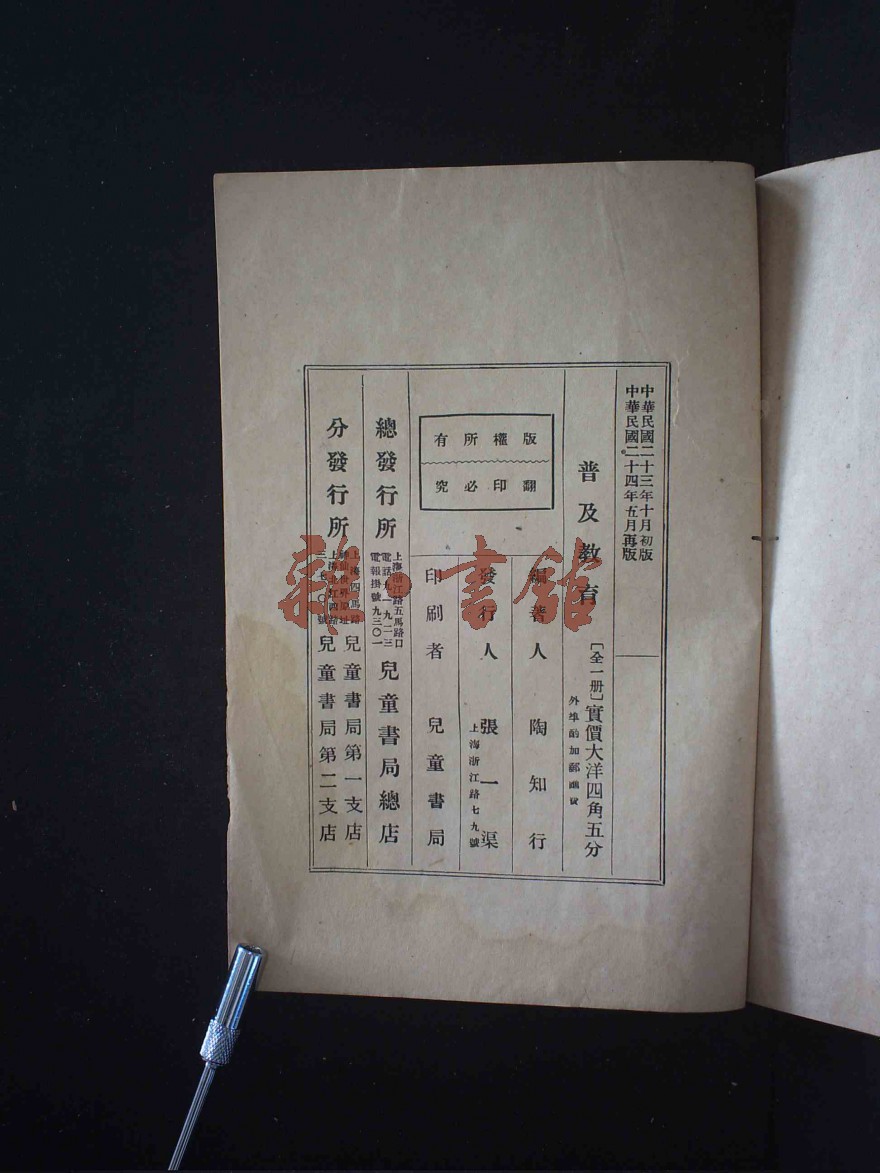 中華民國二十三年十月初版
中華民國二十四年五月再版
普及教育
[全一册]實價大洋四角五分
外埠酌加郵匯費
版權所有
翻印必究
編著人 陶知行
發行人 張一渠
上海浙江路七九號
印刷者 兒童書局
總發行所
上海浙江路五馬路口
電話九一九二三
電報掛號九三〇一
兒童書局總店
分發行所
上海四馬路
兒童書局第一支店
兒童書局第二支店
雜·書館